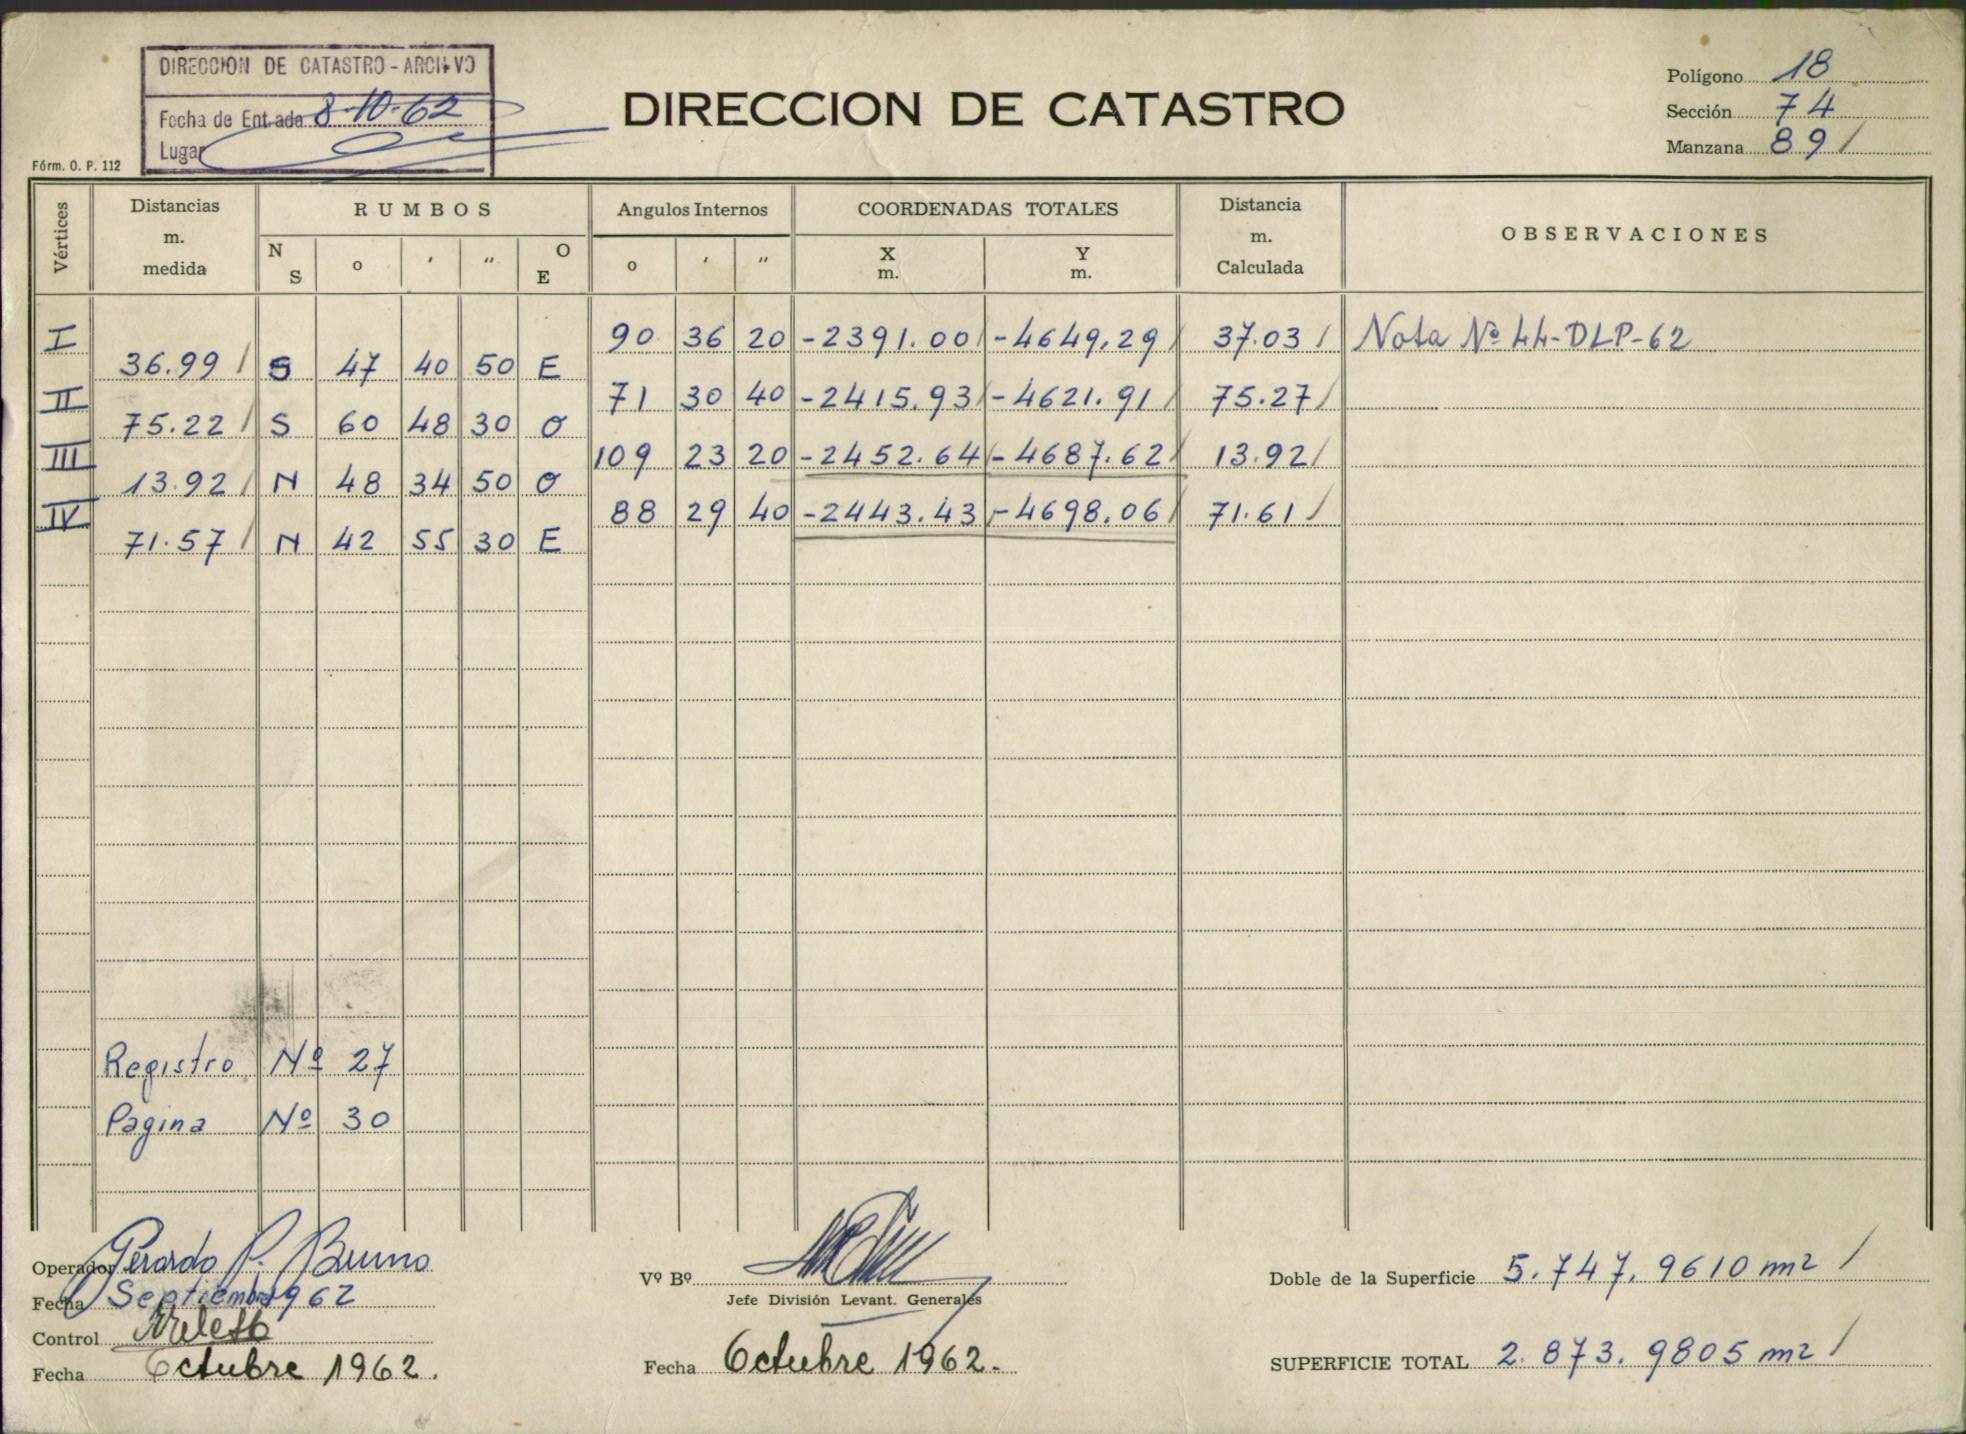 DIRECCION DE CATASTRO - ARCHIVO
Fecha de Entrada 8-10-62
Lugar
Fórm. O. P. 112
DIRECCION DE CATASTRO
Polígono 18
Sección 74
Manzana 89 /
Vértices
Distancias m. medida
RUMBOS
N S o ' " O E
Angulos Internos
o ' "
COORDENADAS TOTALES
X m. Y m.
Distancia m. Calculada
OBSERVACIONES
I 90 36 20 -2391.00/ -4649.29/ 37.03 / Nota Nº 44-DLP-62
36.99 / S 47 40 50 E
II 71 30 40 -2415.93/ -4621.91/ 75.27/
75.22 / S 60 48 30 O
III 109 23 20 -2452.64/ -4687.62/ 13.92/
13.92 / N 48 34 50 O
IV 88 29 40 -2443.43/ -4698.06/ 71.61/
71.57 / N 42 55 30 E
Registro Nº 27
Pagina Nº 30
Operador Gerardo P. Bruno
Fecha Septiembre 1962
Control
Fecha Octubre 1962.
Vº Bº
Jefe División Levant. Generales
Fecha Octubre 1962.
Doble de la Superficie 5.747.9610 m2 /
SUPERFICIE TOTAL 2.873.9805 m2 /